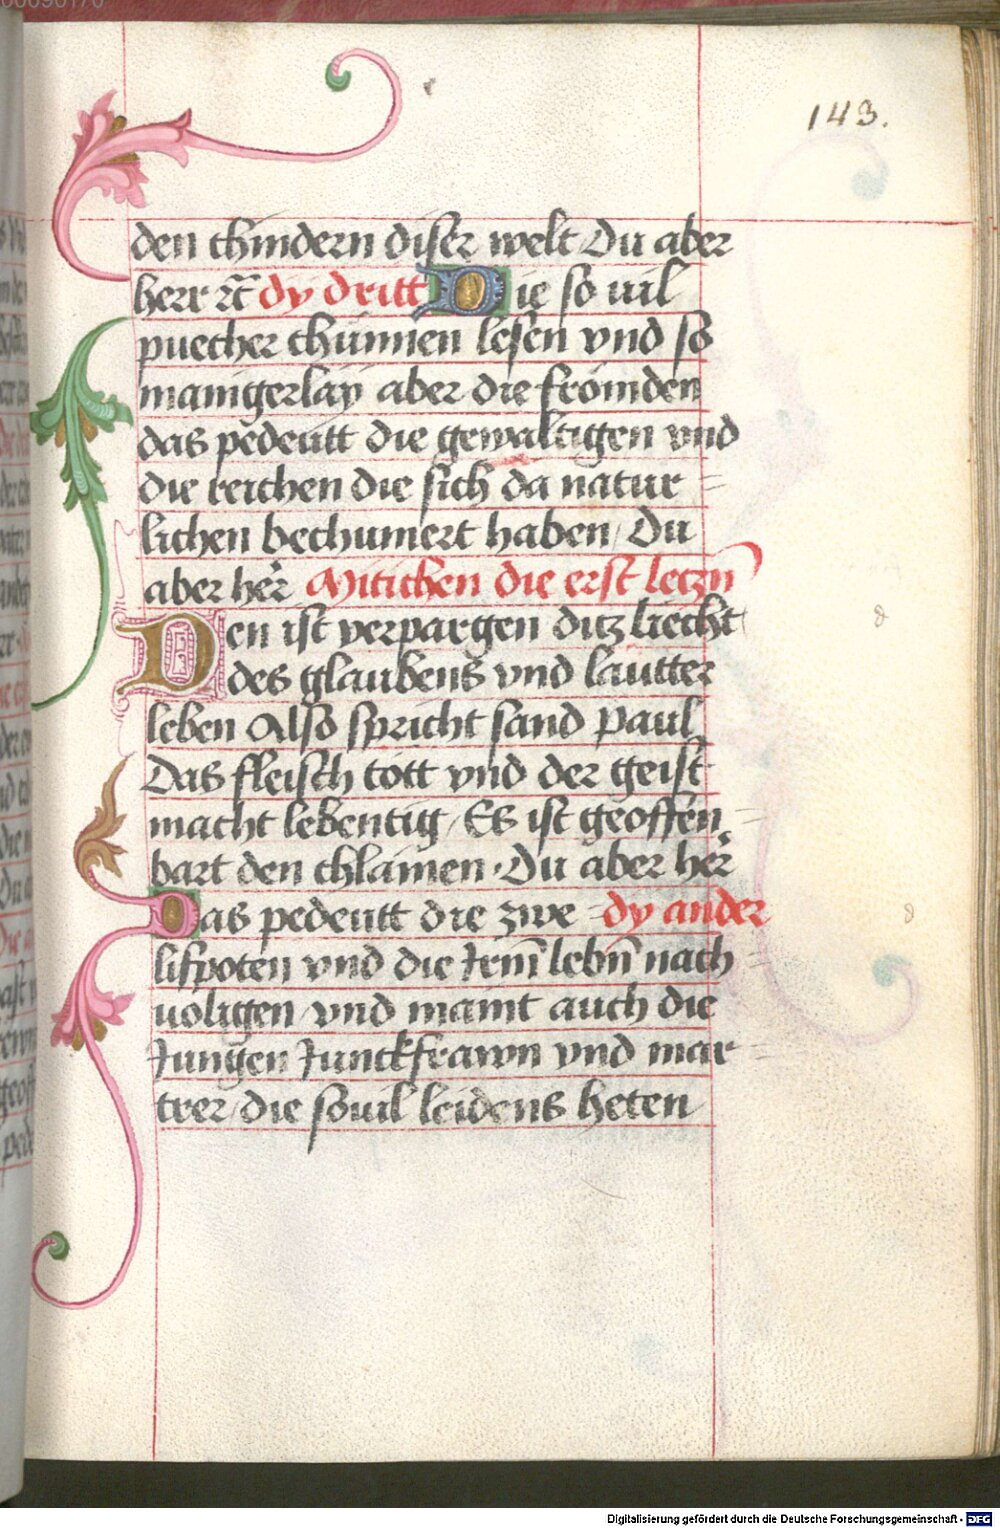 143.
den chindern diser welt Du aber
herr ꝛc̄ dy dritt Die so uil
puecher chünnen lesen vnd so
manigerlay aber die frömden
das pedeutt die gewaltigen vnd
die reichen die sich da natur=
lichen bechumert haben / Du
aber her̄ Mitichen die erst leczn̄
Den ist verpargen ditz liecht
des glaubens vnd lautter
leben Also spricht sand Paul
Das fleisch tött vnd der geist
macht lebentig / Es ist geoffen=
bart den chlainen · Du aber her̄
Das pedeutt die zwe dy ander
lifpoten vnd die Jrm̄ lebn̄ nach
uolgen / vnd maint auch die
Jungen Junckfrawn vnd mar=
trer / die souil leidens heten
Digitalisierung gefördert durch die Deutsche Forschungsgemeinschaft - DFG